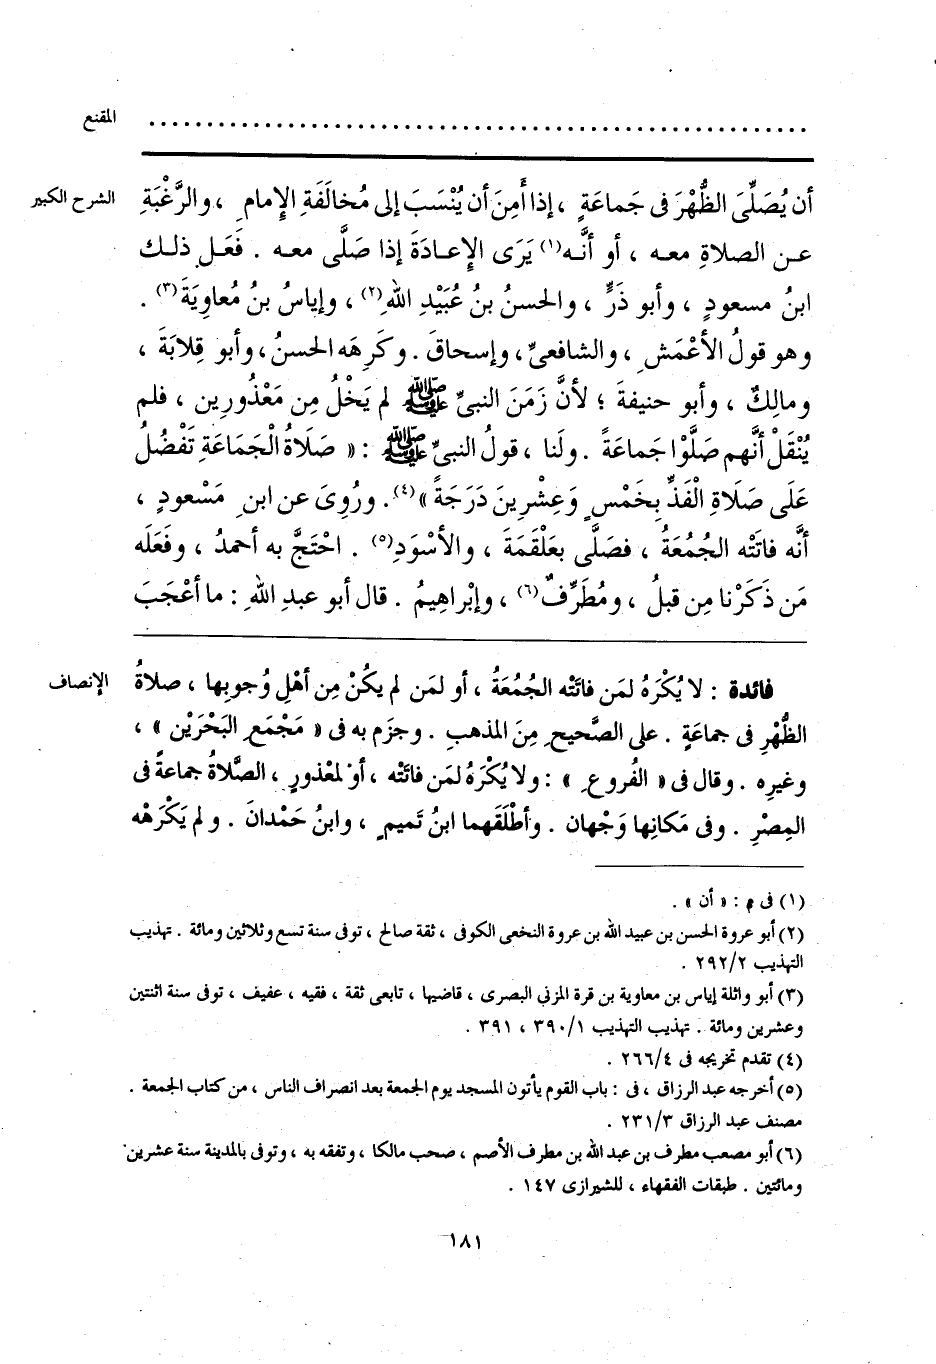 المقنع ......................................................
الشرح الكبير أن يُصَلِّىَ الظُّهْرَ فى جَماعَةٍ ، إذا أَمِنَ أن يُنْسَبَ إلى مُخالَفَةِ الإِمامِ ، والرَّغْبَةِ
عن الصلاةِ معه ، أو أنَّه(١) يَرَى الإِعادَةَ إذا صَلَّى معه . فَعَل ذلك
ابنُ مسعودٍ ، وأبو ذَرٍّ ، والحسنُ بنُ عُبَيْدِ اللهِ(٢) ، وإياسُ بنُ مُعاوِيَةَ(٣) .
وهو قولُ الأعْمَشِ ، والشافعىِّ ، وإسحاقَ . وكَرِهَه الحسنُ ، وأبو قِلابَةَ ،
ومالِكٌ ، وأبو حنيفةَ ؛ لأنَّ زَمَنَ النبىِّ ﷺ لم يَخْلُ مِن مَعْذُورِين ، فلم
يُنْقَلْ أنَّهم صَلَّوْا جَماعَةً . ولَنا ، قولُ النبىِّ ﷺ : « صَلَاةُ الْجَمَاعَةِ تَفْضُلُ
عَلَى صَلَاةِ الْفَذِّ بِخَمْسٍ وَعِشْرِينَ دَرَجَةً »(٤) . ورُوِىَ عن ابنِ مَسْعودٍ ،
أنَّه فاتَتْه الجُمُعَةُ ، فصَلَّى بعَلْقَمَةَ ، والأسْوَدِ(٥) . احْتَجَّ به أحمدُ ، وفَعَلَه
مَن ذَكَرْنا مِن قبلُ ، ومُطَرِّفٌ(٦) ، وإبْراهِيمُ . قال أبو عبدِ اللهِ : ما أعْجَبَ
الإنصاف فائدة : لا يُكْرَهُ لمَن فاتَتْه الجُمُعَةُ ، أو لمَن لم يكُنْ مِن أهْلِ وُجوبِها ، صلاةُ
الظُّهْرِ فى جماعَةٍ . على الصَّحيحِ مِنَ المذهبِ . وجزَم به فى « مَجْمَعِ البَحْرَيْن » ،
وغيرِه . وقال فى « الفُروعِ » : ولا يُكْرَهُ لمَن فاتَتْه ، أوْ لمعْذورٍ ، الصَّلاةُ جماعةً فى
المِصْرِ . وفى مَكانِها وَجْهان . وأطْلَقَهما ابنُ تَميمٍ ، وابنُ حَمْدانَ . ولم يَكْرَهْه
(١) فى م : « أن » .
(٢) أبو عروة الحسن بن عبيد الله بن عروة النخعى الكوفى ، ثقة صالح ، توفى سنة تسع وثلاثين ومائة . تهذيب
التهذيب ٢٩٢/٢ .
(٣) أبو واثلة إياس بن معاوية بن قرة المزنى البصرى ، قاضيها ، تابعى ثقة ، فقيه ، عفيف ، توفى سنة اثنتين
وعشرين ومائة . تهذيب التهذيب ٣٩٠/١ ، ٣٩١ .
(٤) تقدم تخريجه فى ٢٦٦/٤ .
(٥) أخرجه عبد الرزاق ، فى : باب القوم يأتون المسجد يوم الجمعة بعد انصراف الناس ، من كتاب الجمعة .
مصنف عبد الرزاق ٢٣١/٣ .
(٦) أبو مصعب مطرف بن عبد الله بن مطرف الأصم ، صحب مالكا ، وتفقه به ، وتوفى بالمدينة سنة عشرين
ومائتين . طبقات الفقهاء ، للشيرازى ١٤٧ .
١٨١